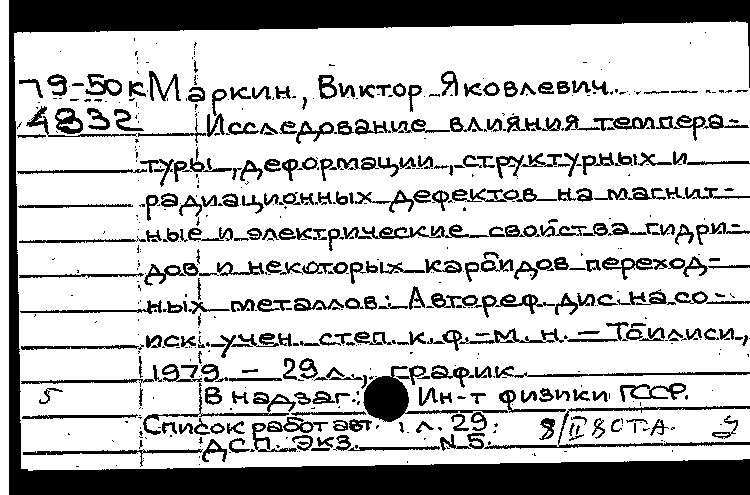 79-50к Маркин, Виктор Яковлевич.
4832 Исследование влияния темпера-
туры, деформации, структурных и
радиационных дефектов на магнит-
ные и электрические свойства гидри-
дов и некоторых карбидов переход-
ных металлов: Автореф. дис. на со-
иск. учен. степ. к. ф.-м. н. - Тбилиси,
1979. - 29 л., график.
5 В надзаг.: Ин-т физики ГССР.
Список работ авт.: л. 29. 8/II 80
ДСП. Экз. N 5.